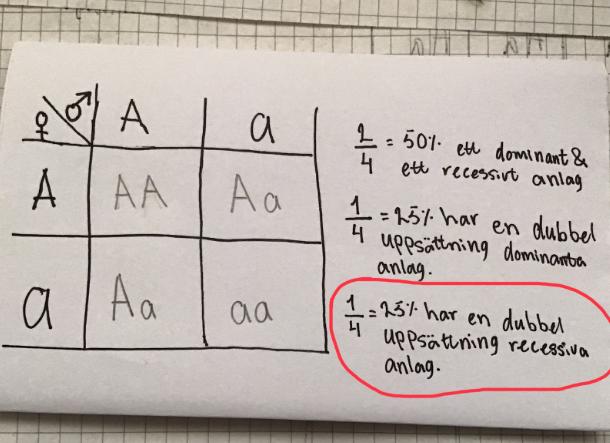 ♀ ♂ A a
A AA Aa
a Aa aa
2/4 = 50% ett dominant &
ett recessivt anlag
1/4 = 25% har en dubbel
uppsättning dominanta
anlag.
1/4 = 25% har en dubbel
uppsättning recessiva
anlag.